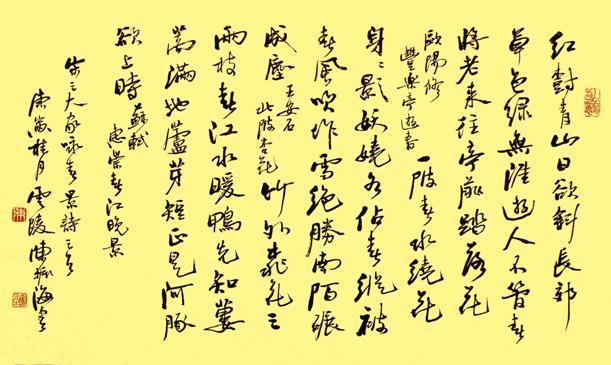 紅樹青山日欲斜長郊
草色绿無涯遊人不管春
將老来往亭前踏落花
歐陽修
豐樂亭遊春
一陂春水繞花
身〻影妖嬈各佔春縱被
春風吹作雪絶勝南陌碾
成塵
王安石
北陂杏花
竹外桃花三
兩枝春江水暖鴨先知蔞
蒿滿地蘆芽短正是河豚
欲上時
蘇軾
惠崇春江晚景
宋三大家咏春景詩三首
庚寅桂月雲陵陳海書